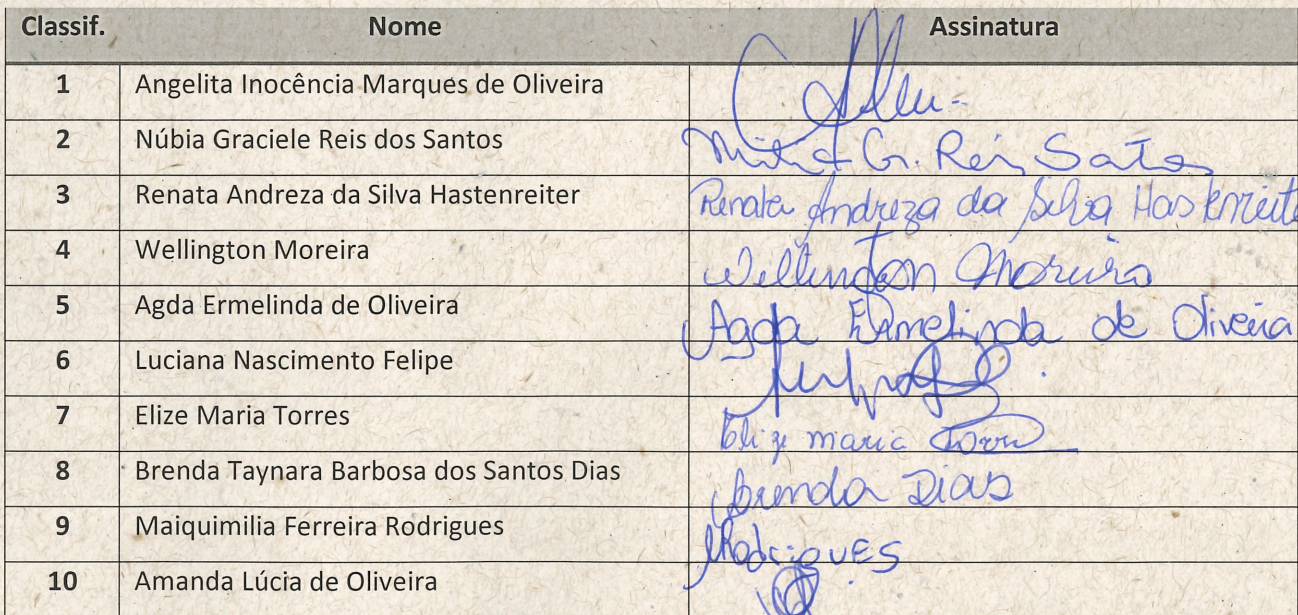 Classif. Nome Assinatura
1 Angelita Inocência Marques de Oliveira
2 Núbia Graciele Reis dos Santos G. Reis Santos
3 Renata Andreza da Silva Hastenreiter Renata Andreza da Silva Hastenreite
4 Wellington Moreira Wellington Moreira
5 Agda Ermelinda de Oliveira Agda Ermelinda de Oliveira
6 Luciana Nascimento Felipe
7 Elize Maria Torres Elize maria Torres
8 Brenda Taynara Barbosa dos Santos Dias Brenda Dias
9 Maiquimilia Ferreira Rodrigues MRodrigues
10 Amanda Lúcia de Oliveira